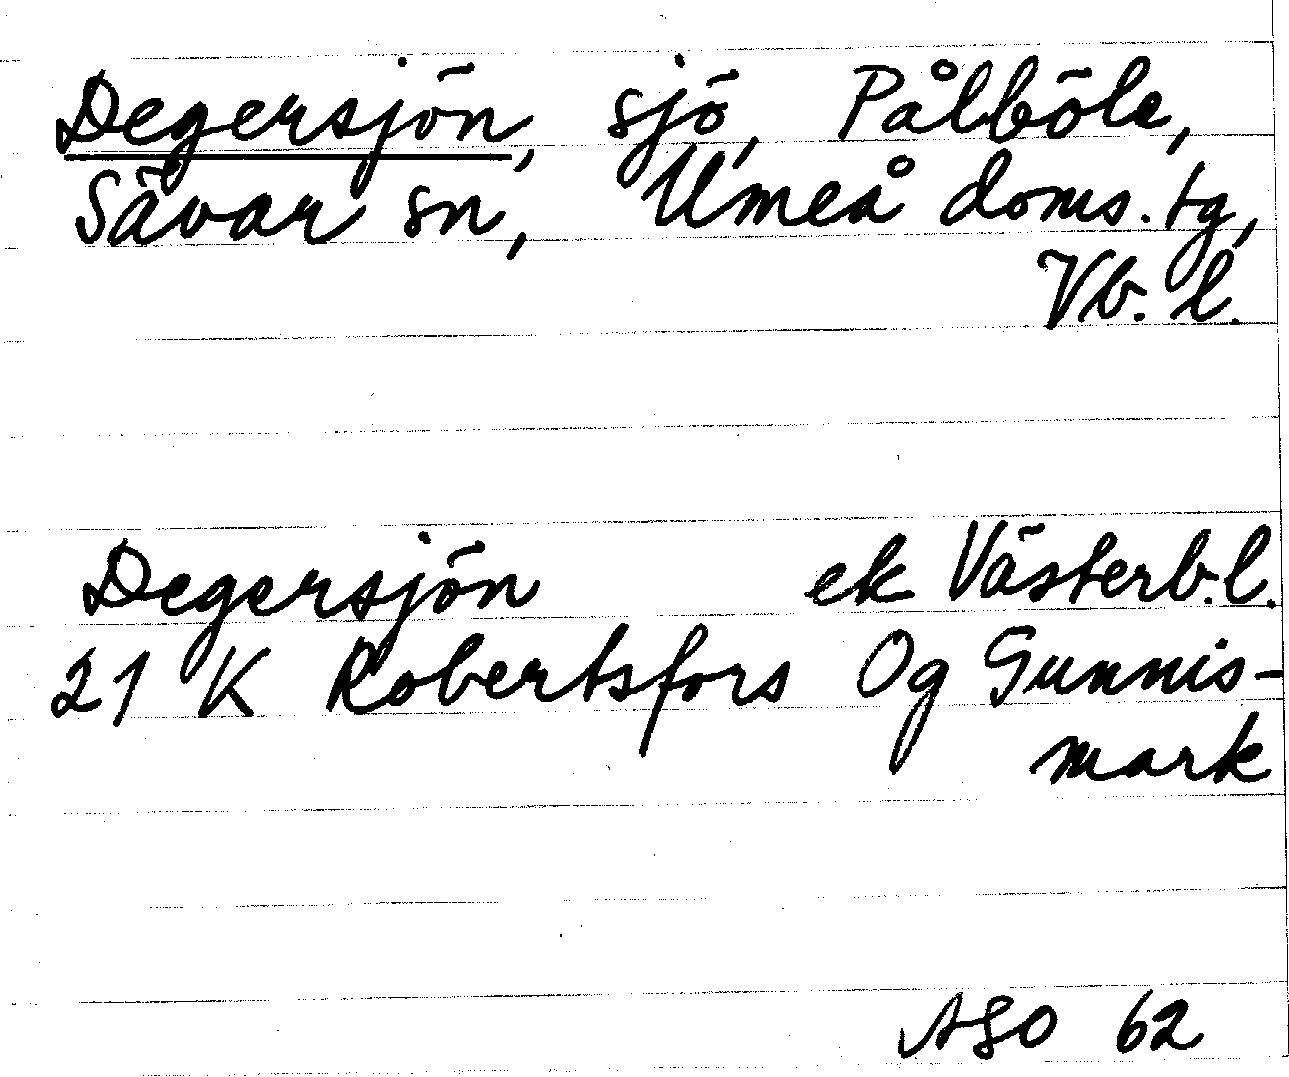 Degersjön, sjö, Pålböle,
Sävar sn, Umeå doms. tg,
Vb. l.
Degersjön ek Västerb. l.
21 K Robertsfors Og Gunnis-
mark
ASO 62